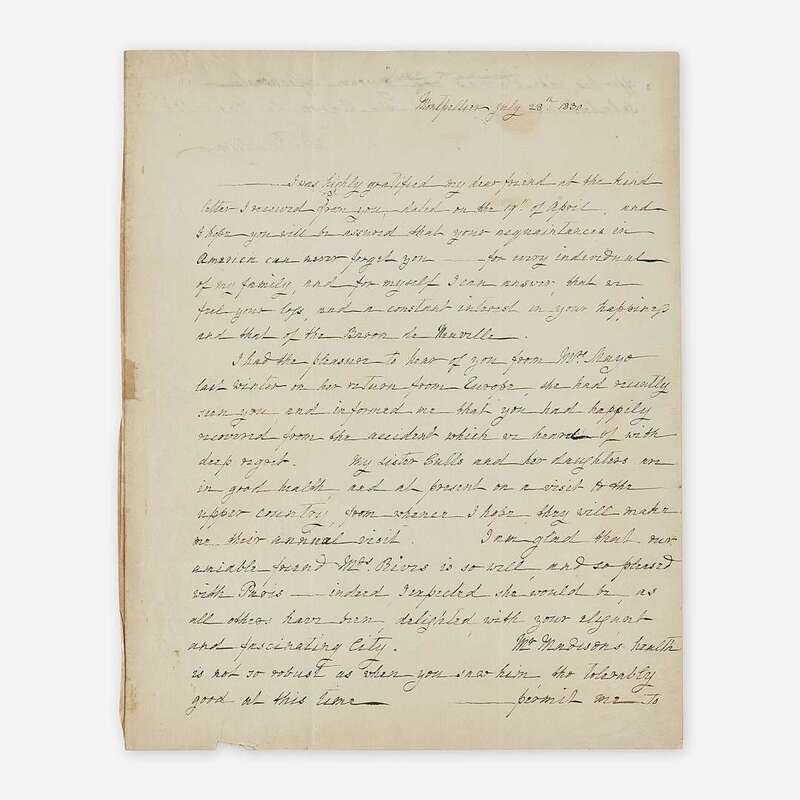 Montpellier July 28th 1830
I was highly gratified my dear friend at the kind
letter I received from you, dated on the 19th of April, and
I hope you will be assured that your acquaintances in
America can never forget you — for every individual
of my family, and for myself I can answer, that we
feel your loss, and a constant interest in your happiness
and that of the Baron de Neuville.
I had the pleasure to hear of you from Mrs. Mayo
last winter on her return from Europe, she had recently
seen you and informed me that you had happily
recovered from the accident which we heard of with
deep regret. My sister Cutts and her daughters are
in good health, and at present on a visit to the
upper country, from whence I hope they will make
me their annual visit. I am glad that our
amiable friend Mrs. Rives is so well, and so pleased
with Paris — indeed I expected she would be, as
all others have been, delighted with your elegant
and fascinating City. Mr. Madison's health
is not so robust as when you saw him tho tolerably
good at this time — permit me to